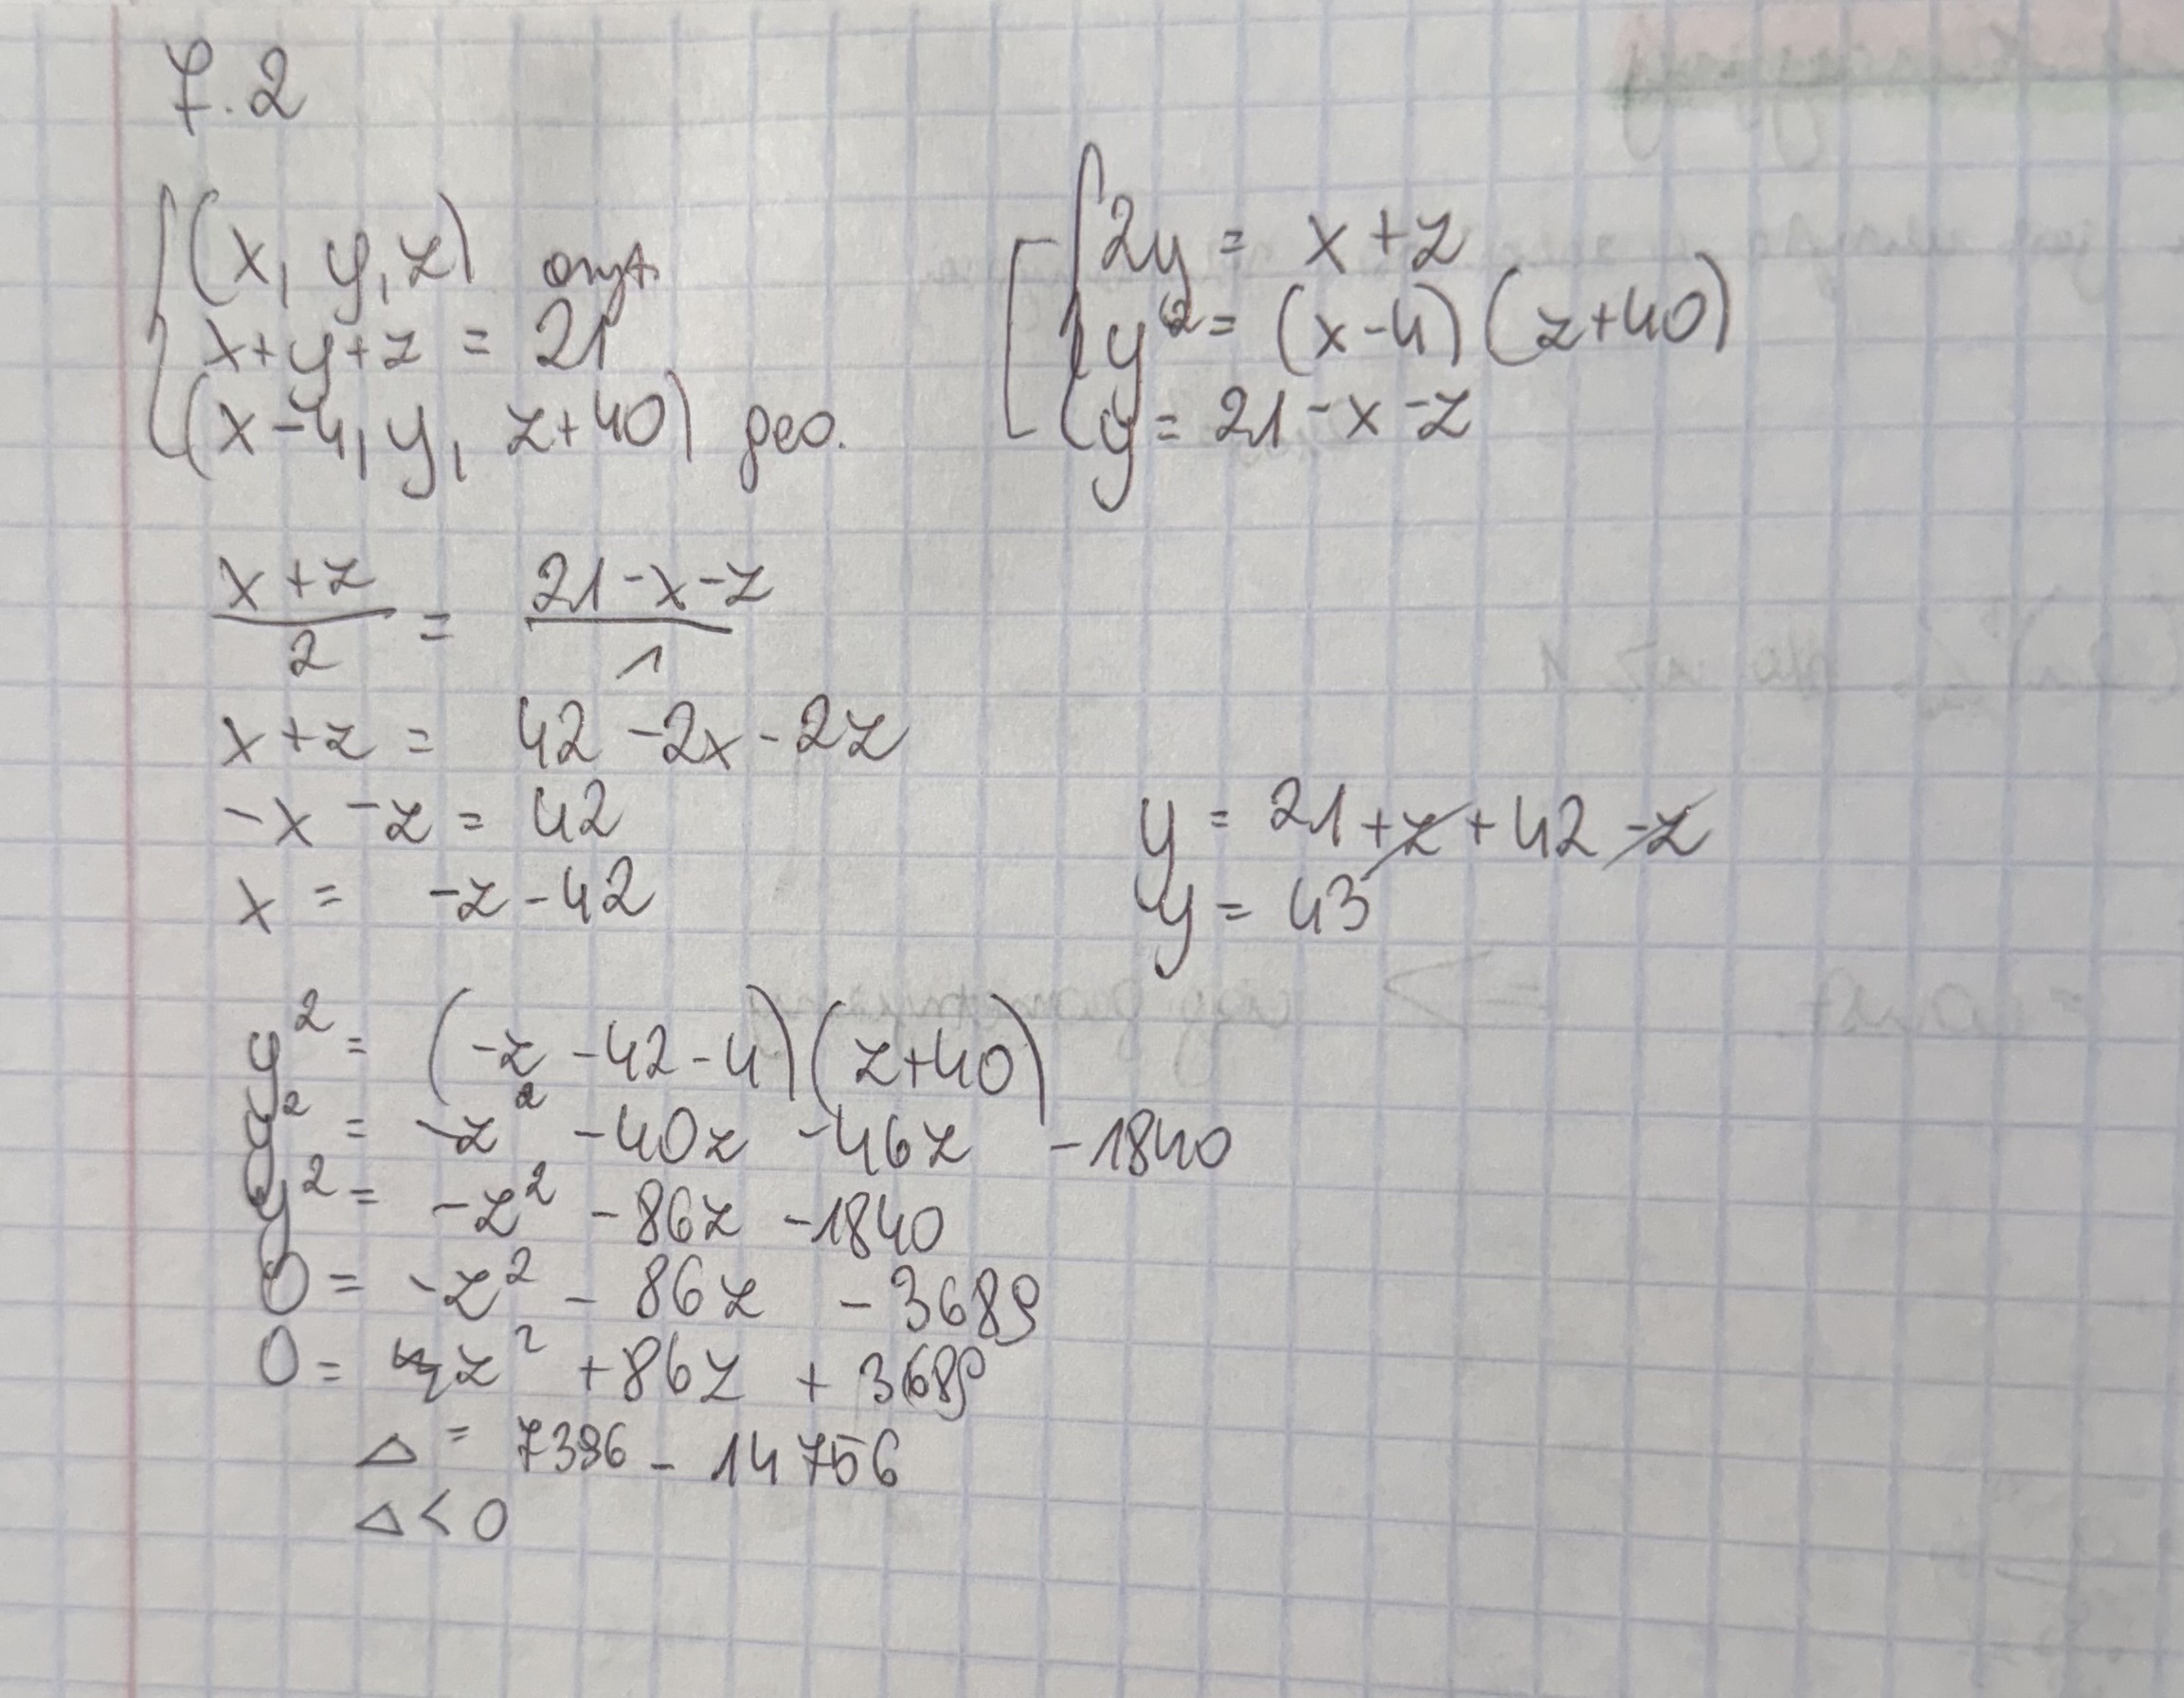 7.2
(x, y, z) aryt.
x+y+z = 21
(x-4, y, z+40) geo.
2y = x+z
y² = (x-4)(z+40)
y = 21-x-z
(x+z)/2 = (21-x-z)/1
x+z = 42-2x-2z
-x-z = 42
x = -z-42
y = 21+z+42-z
y = 43
y² = (-z-42-4)(z+40)
y² = -z²-40z-46z-1840
y² = -z²-86z-1840
0 = -z²-86z-3689
0 = z²+86z+3689
Δ = 7396-14756
Δ<0